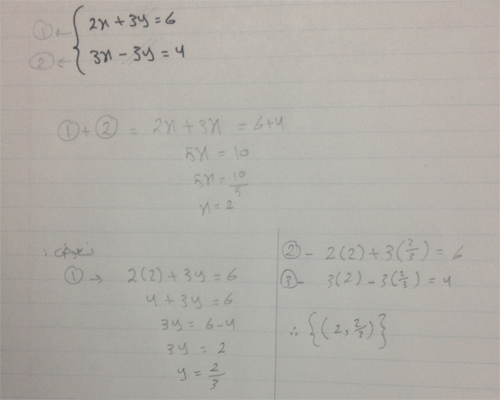 ① ← 2x + 3y = 6
② ← 3x - 3y = 4
① + ② = 2x + 3x = 6+4
5x = 10
5x = 10/5
x = 2
① → 2(2) + 3y = 6
4 + 3y = 6
3y = 6-4
3y = 2
y = 2/3
② - 2(2) + 3(2/3) = 6
③ - 3(2) - 3(2/3) = 4
∴ {(2, 2/3)}